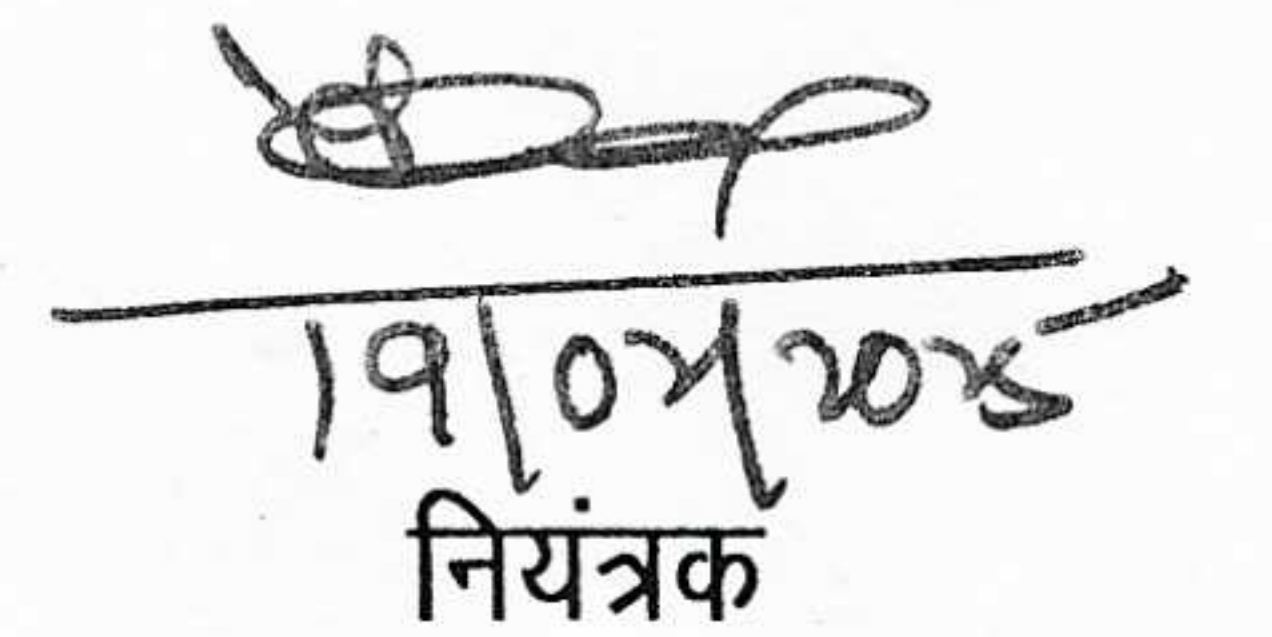 19/02/2025
नियंत्रक